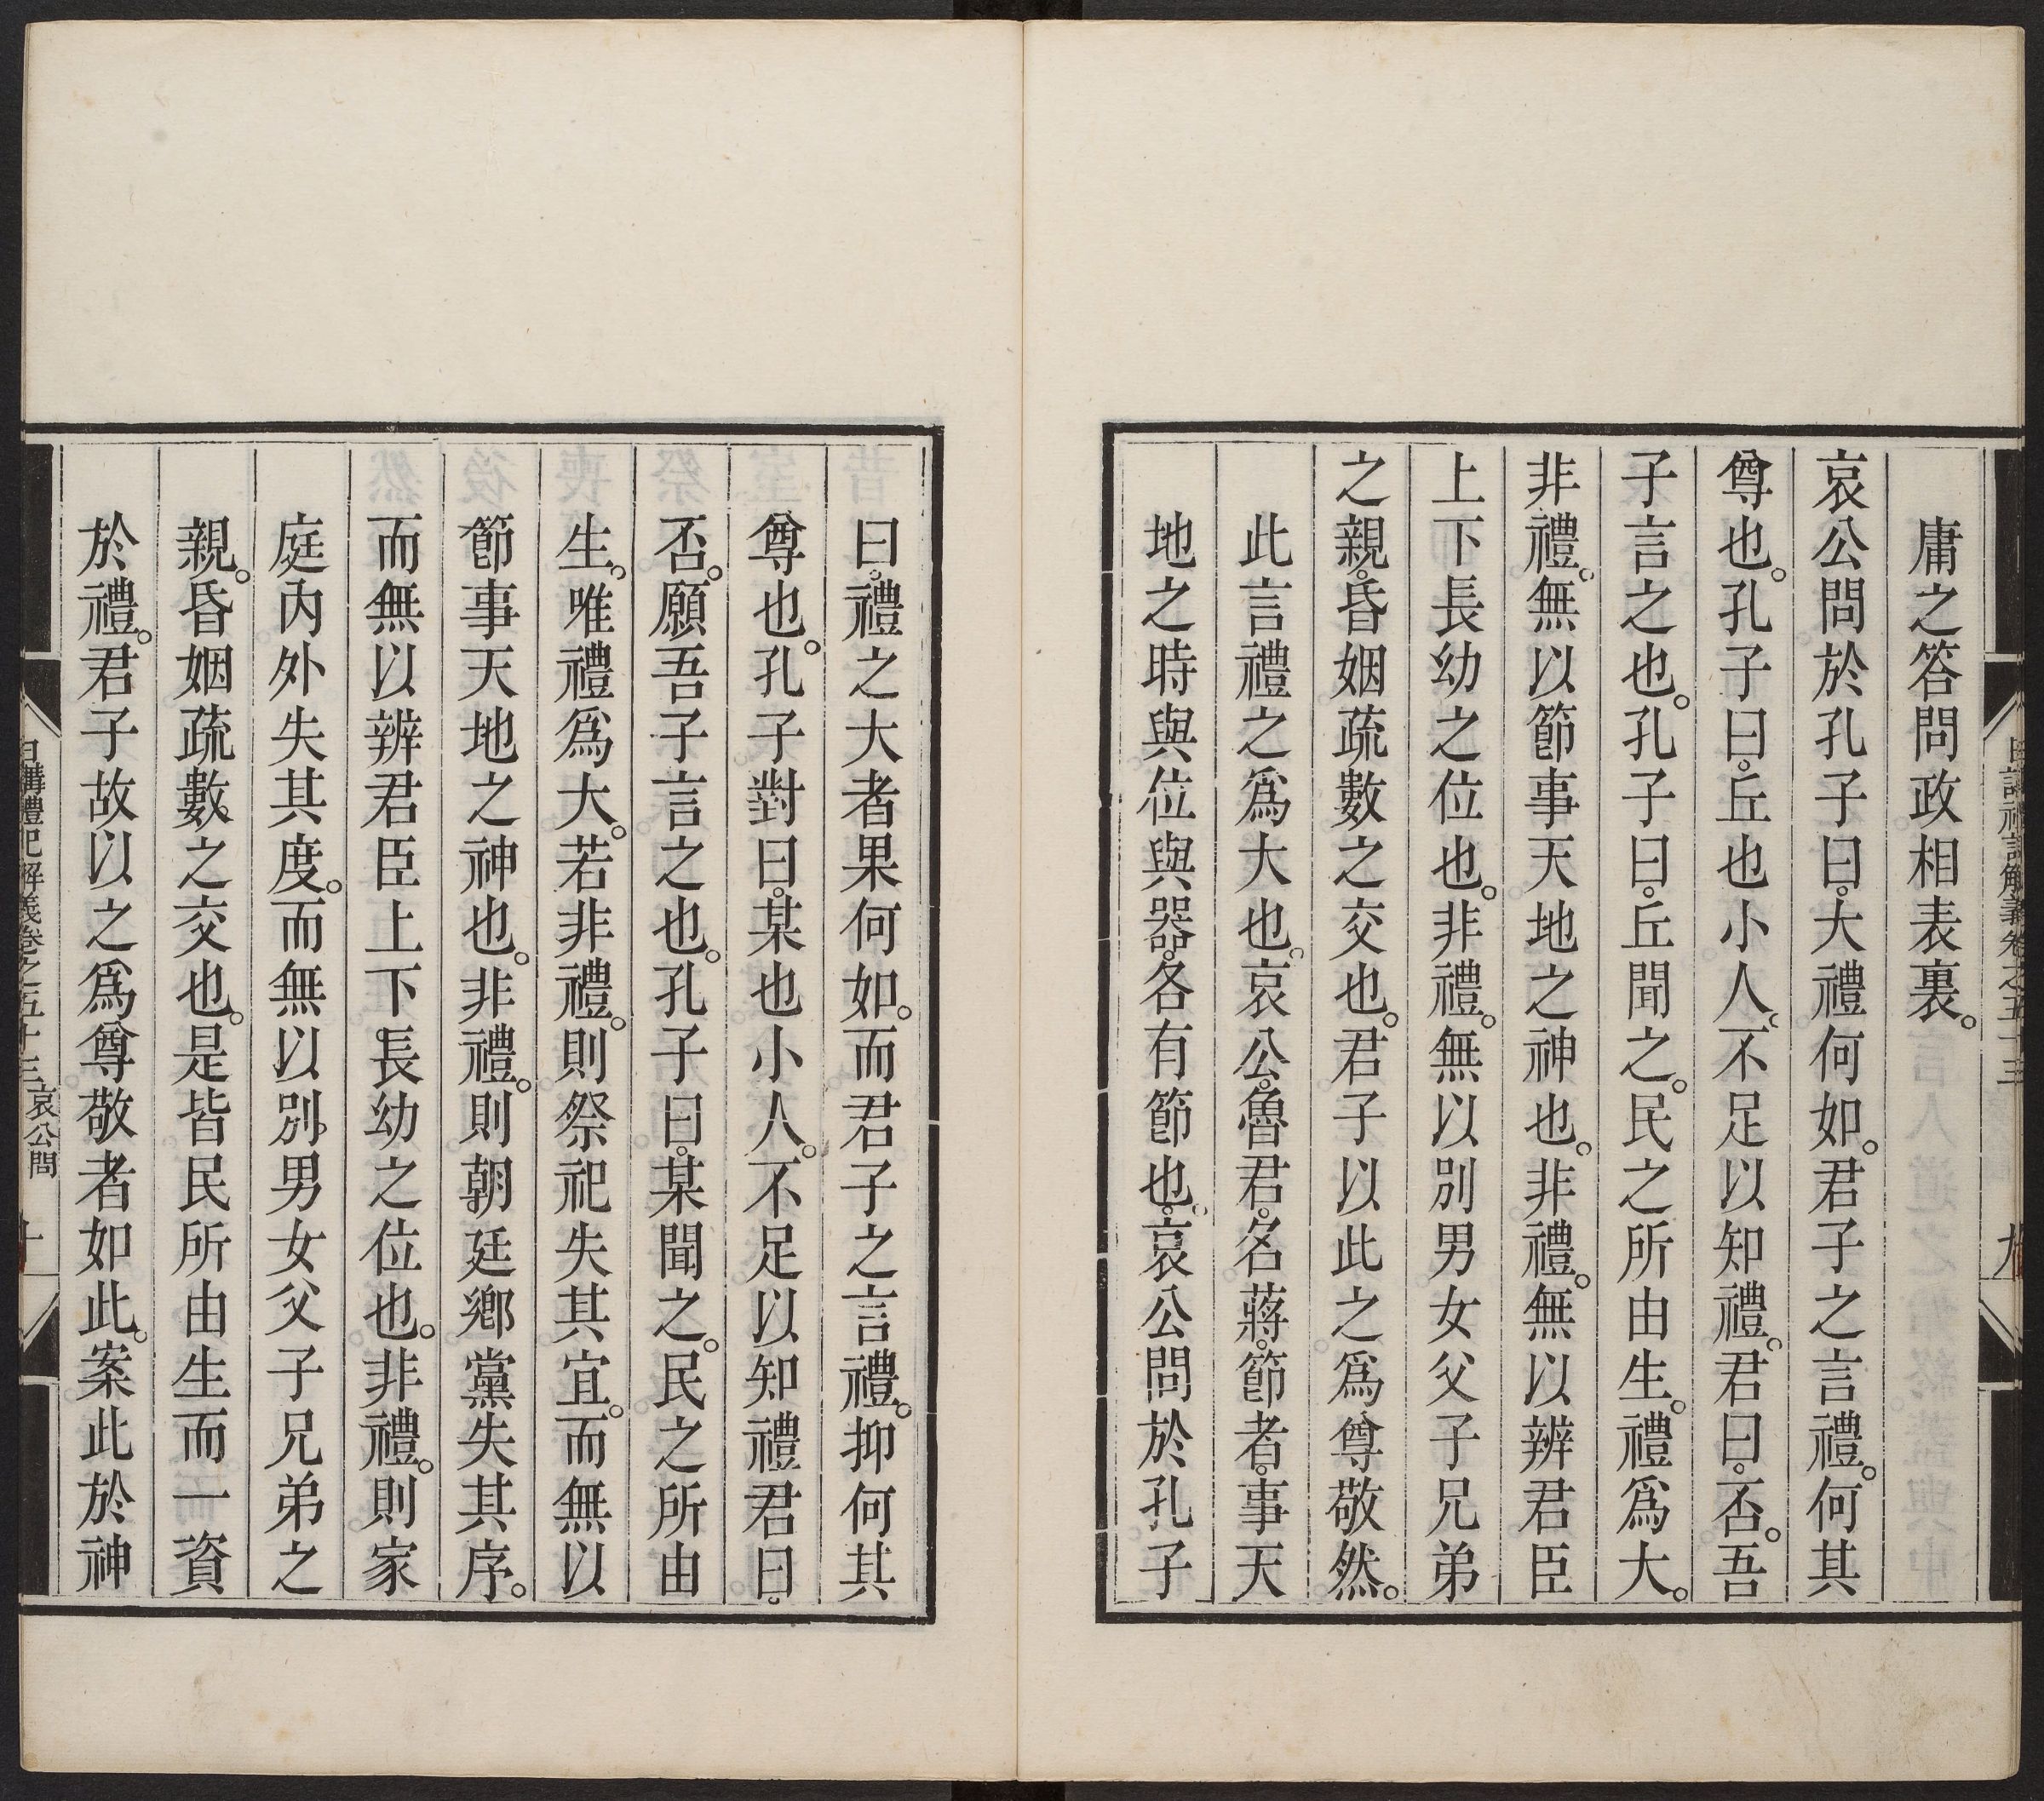 日講禮記解義卷之五十三
九
庸之答問政相表裏。
哀公問於孔子曰。大禮何如。君子之言禮。何其
尊也。孔子曰。丘也小人。不足以知禮。君曰。否。吾
子言之也。孔子曰。丘聞之。民之所由生。禮爲大。
非禮。無以節事天地之神也。非禮。無以辨君臣
上下長幼之位也。非禮。無以別男女父子兄弟
之親。昏姻疏數之交也。君子以此之爲尊敬然。
此言禮之爲大也。哀公。魯君。名蔣。節者。事天
地之時與位與器。各有節也。哀公問於孔子
曰。禮之大者果何如。而君子之言禮。抑何其
尊也。孔子對曰。某也小人。不足以知禮君曰。
否。願吾子言之也。孔子曰。某聞之。民之所由
生。唯禮爲大。若非禮。則祭祀失其宜。而無以
節事天地之神也。非禮。則朝廷鄉黨失其序。
而無以辨君臣上下長幼之位也。非禮。則家
庭內外失其度。而無以別男女父子兄弟之
親。昏姻疏數之交也。是皆民所由生而一資
於禮。君子故以之爲尊敬者如此。案此於神
日講禮記解義卷之五十三 哀公問
十